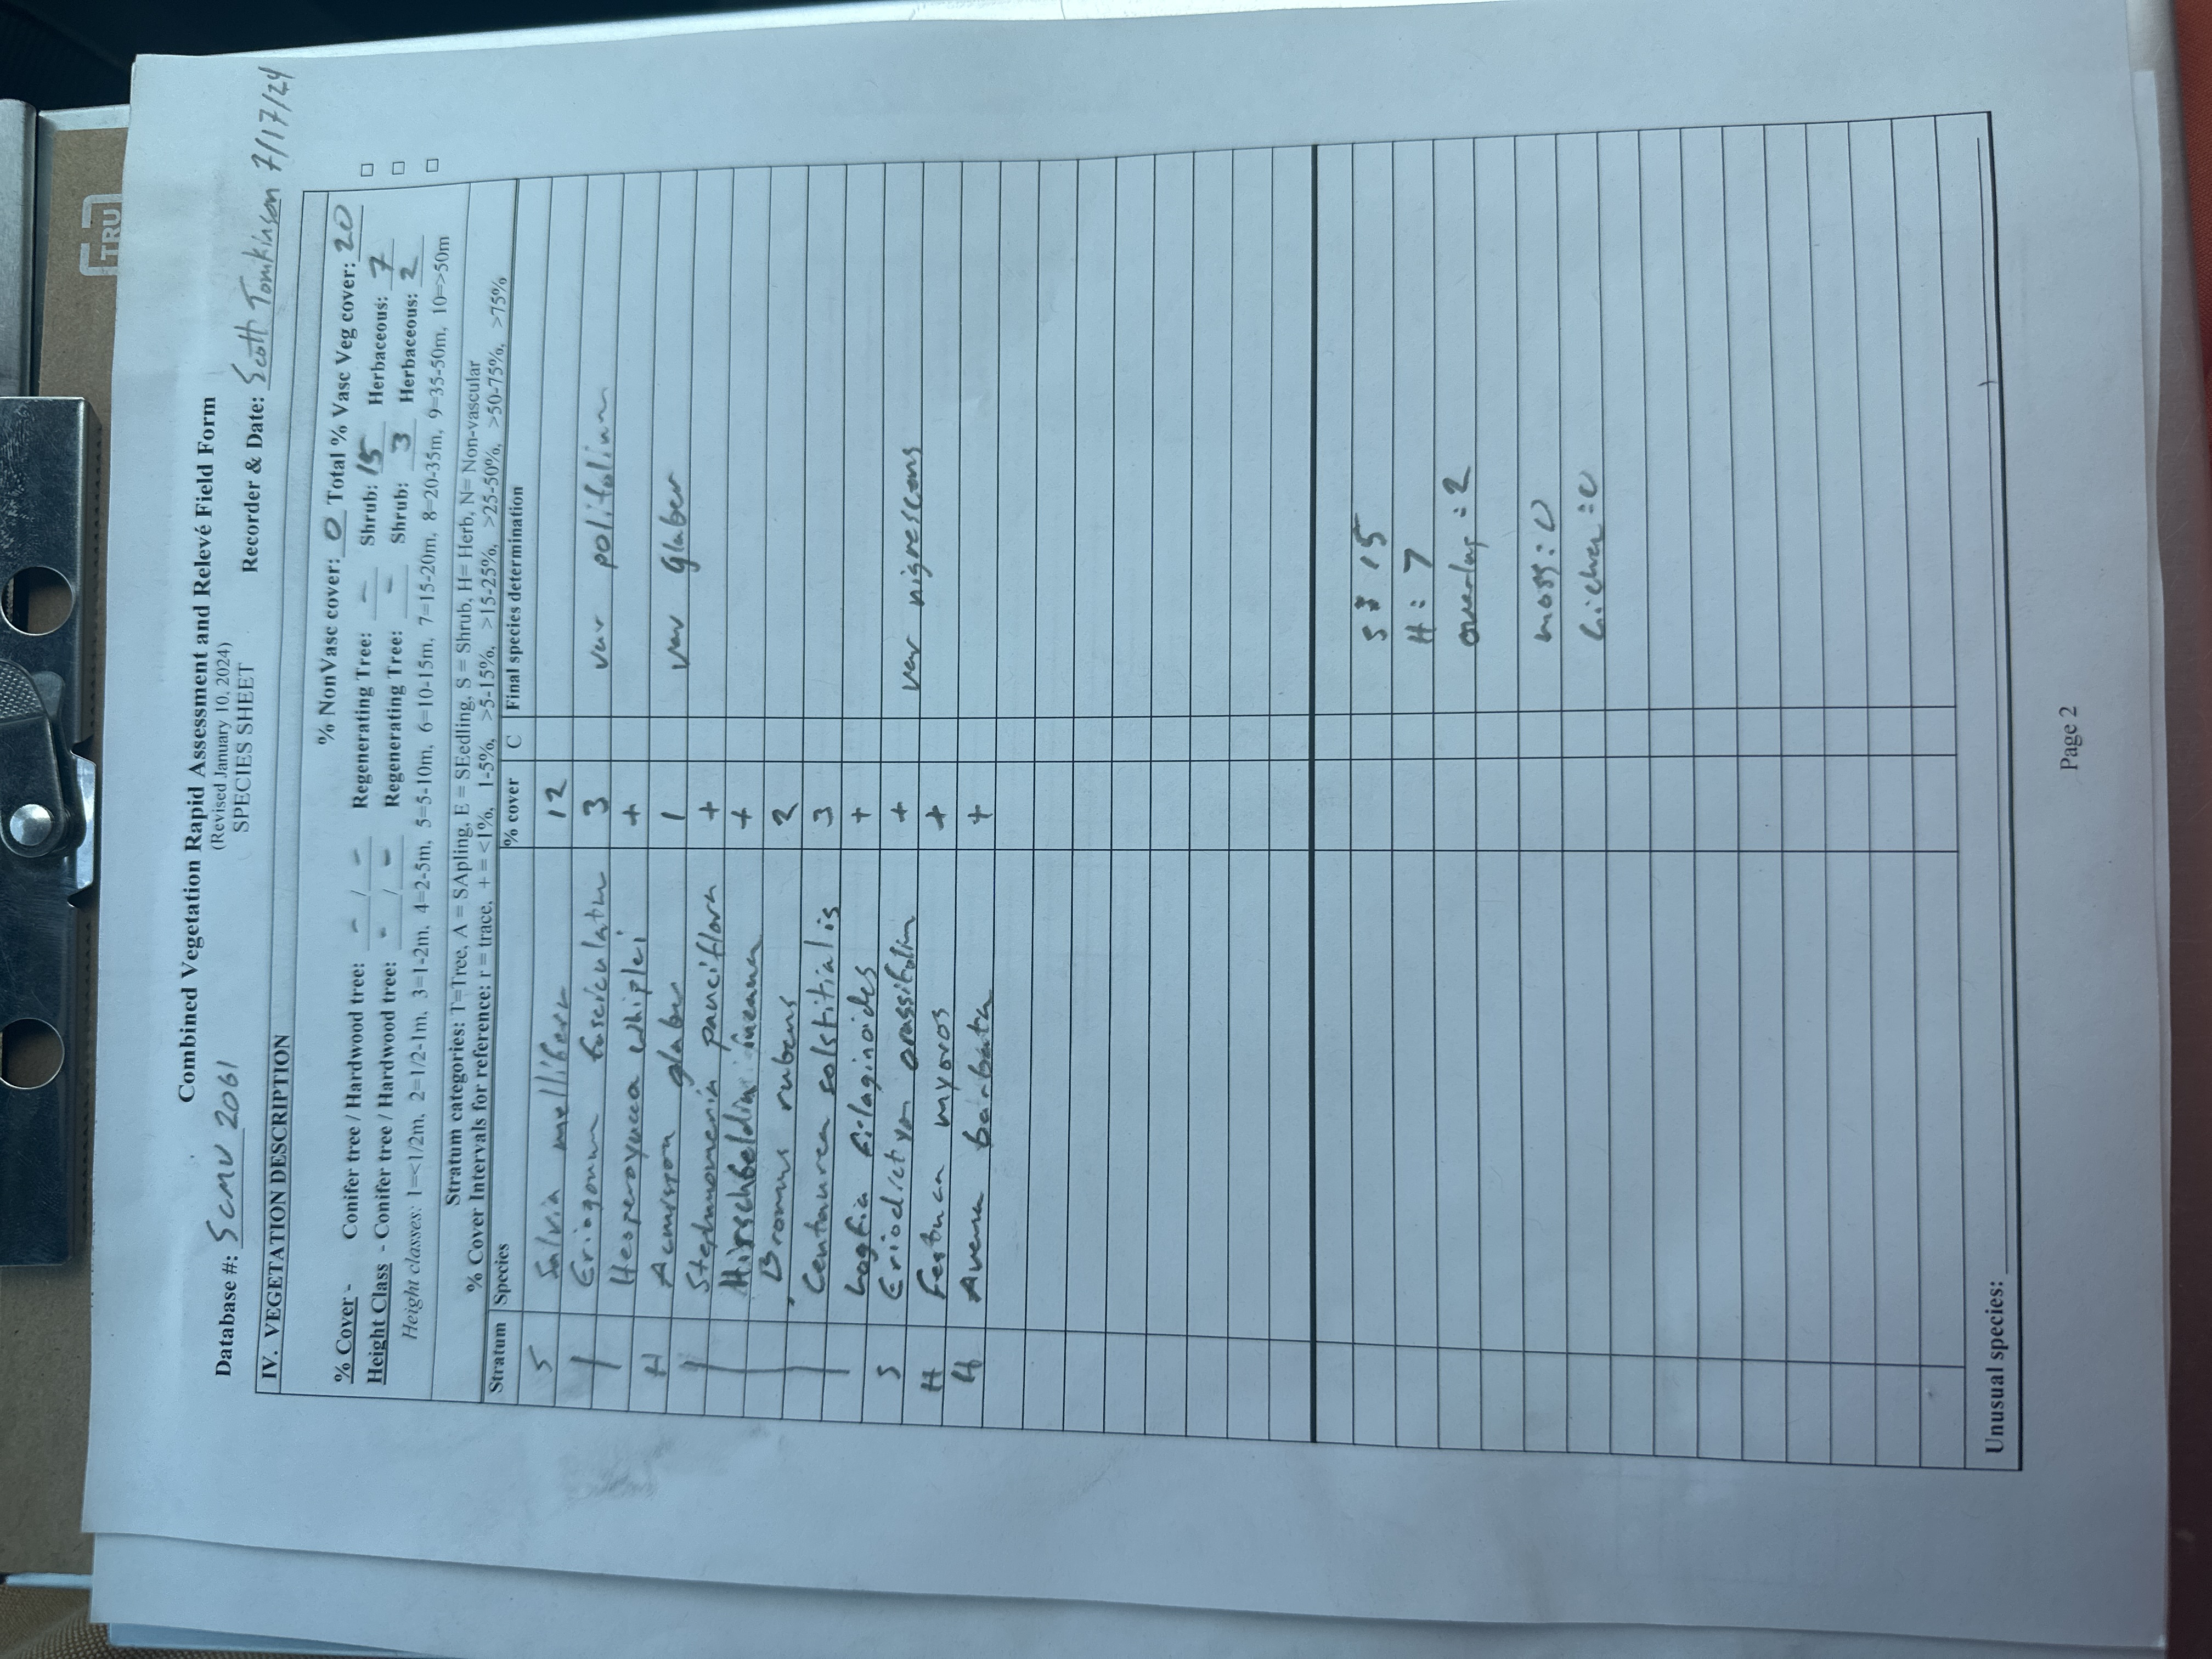 TRU
Combined Vegetation Rapid Assessment and Relevé Field Form
(Revised January 10, 2024)
SPECIES SHEET
Database #: SCMU 2061 Recorder & Date: Scott Tomkinson 7/17/24
IV. VEGETATION DESCRIPTION
% NonVasc cover: 0 Total % Vasc Veg cover: 20
% Cover - Conifer tree / Hardwood tree: - / - Regenerating Tree: - Shrub: 15 Herbaceous: 7 □
Height Class - Conifer tree / Hardwood tree: - / - Regenerating Tree: - Shrub: 3 Herbaceous: 2 □
Height classes: 1=<1/2m, 2=1/2-1m, 3=1-2m, 4=2-5m, 5=5-10m, 6=10-15m, 7=15-20m, 8=20-35m, 9=35-50m, 10=>50m □
Stratum categories: T=Tree, A = SApling, E = SEedling, S = Shrub, H= Herb, N= Non-vascular
% Cover Intervals for reference: r = trace, + = <1%, 1-5%, >5-15%, >15-25%, >25-50%, >50-75%, >75%
Stratum Species % cover C Final species determination
S Salvia mellifera 12
| Eriogonum fasciculatum 3 var polifolium
Hesperoyucca whiplei +
H Acmispon glaber 1 var glaber
| Stephanomeria pauciflora +
Hirschfeldia incana +
Bromus rubens 2
| Centaurea solstitialis 3
Logfia filaginoides +
S Eriodictyon crassifolium + var nigrescens
H Festuca myoros +
H Avena barbata +
S: 15
H: 7
overlap: 2
moss: 0
Lichen: 0
Unusual species:
Page 2